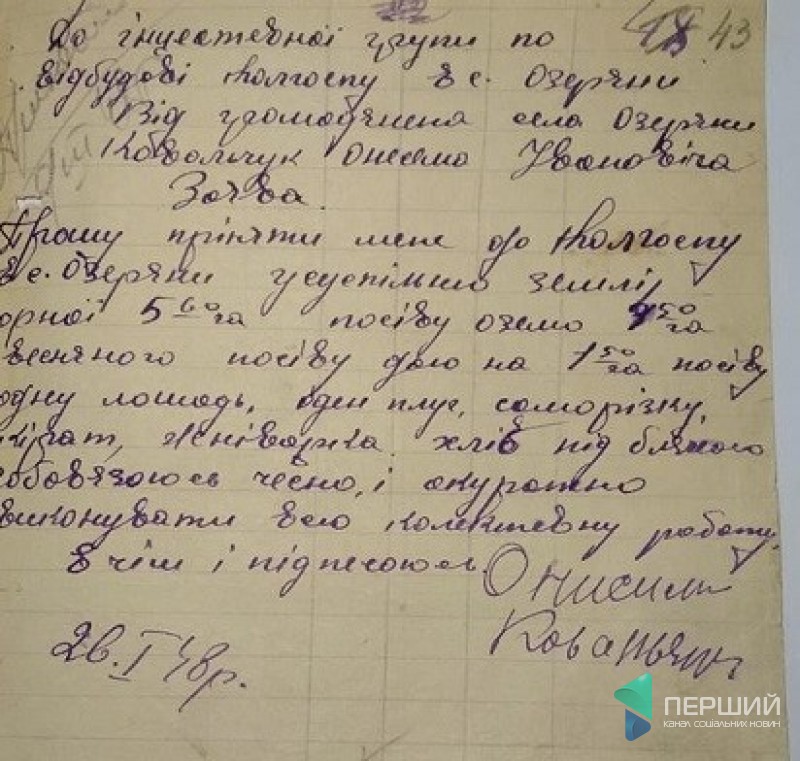 До інцеатевної групи по 43
відбудові колгоспу в с. Озеряни
Від громодянена села Озеряни
Ковольчук Онесемо Івановіча
Зоява.
Прошу пріняти мене до колгоспу
в с. Озеряни усуспільню землі,
орної 5 60 га посіву оземо 1 50 га
весняного посіву дою на 1 50 га посіву
одну лошодь, оден плуг, соморізку,
жніворка. хліб під бляхою
обовязоюсь чесно, і окуротно
виконувати всю колективну роботу,
в чім і підпесоюсь. Онисим
Ковальчук
26.I 48р.
ПЕРШИЙ
КАНАЛ СОЦІАЛЬНИХ НОВИН